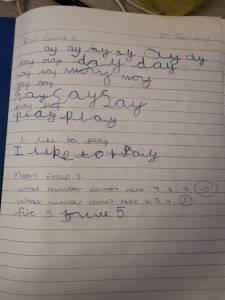 ay ay ay ay ay ay
day day day day
may may
say say say
play play
play play
I like to play
I like to play
Maths Group 3
what number comes next 7, 8, 9, 10
what number comes next 3, 4, 5
five 5 five 5